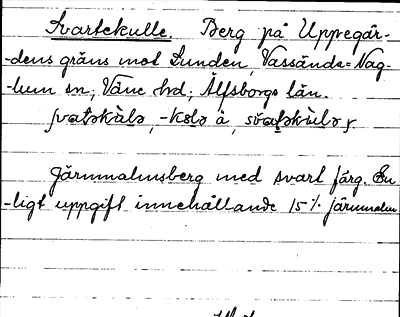 Svartekulle. Berg på Uppegår-
-dens gräns mot Lunden, Vassända=Nag-
-lum sn; Väne hrd; Älfsborgs län.
Järnmalmsberg med svart färg. En-
-ligt uppgift innehållande 15% järnmalm